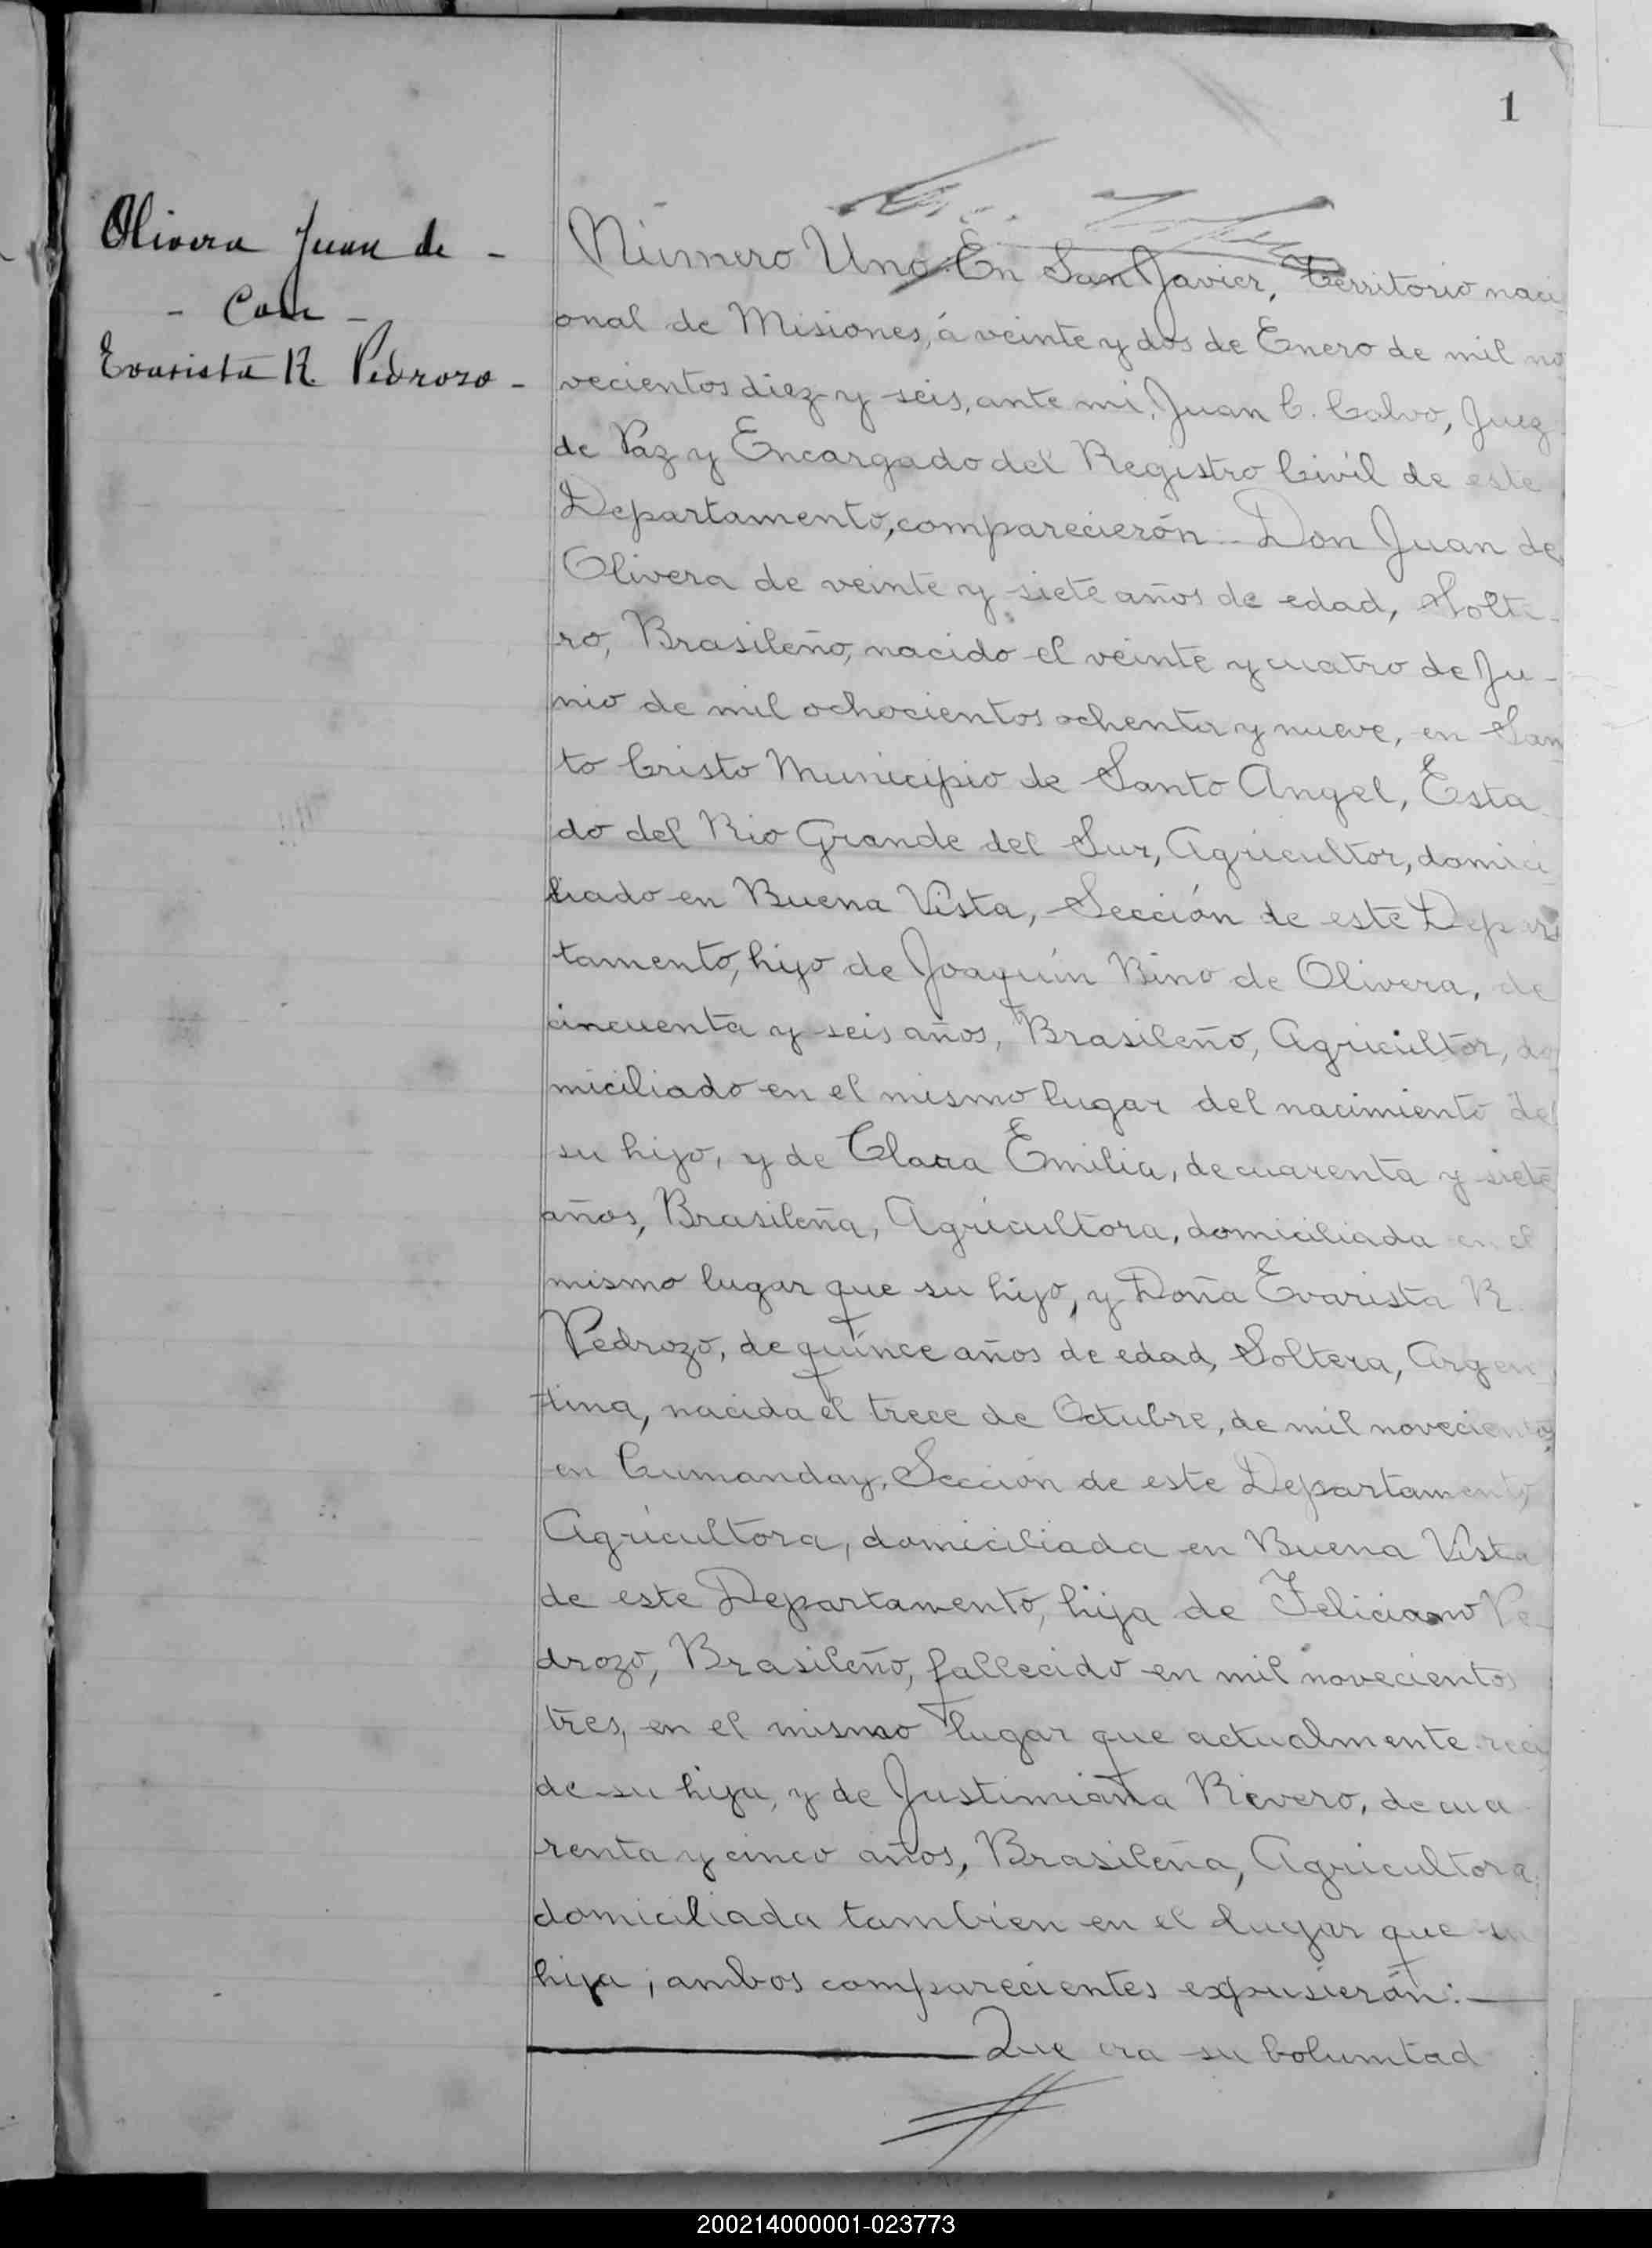 1
Olivera Juan de -
- Con -
Evarista R. Pedrozo -
Número Uno. En San Javier, territorio naci
onal de Misiones, á veinte y dos de Enero de mil no
vecientos diez y seis, ante mi, Juan C. Calvo, Juez
de Paz y Encargado del Registro Civil de este
Departamento, comparecierón Don Juan de
Olivera de veinte y siete años de edad, Solte-
ro, Brasileño, nacido el veinte y cuatro de Ju-
nio de mil ochocientos ochenta y nueve, en San
to Cristo Municipio de Santo Angel, Esta
do del Rio Grande del Sur, Agricultor, domici
liado en Buena Vista, Sección de este Depar
tamento, hijo de Joaquín Bino de Olivera, de
cincuenta y seis años, Brasileño, Agricultor, do
miciliado en el mismo lugar del nacimiento de
su hijo, y de Clara Emilia, de cuarenta y siete
años, Brasileña, Agricultora, domiciliada en el
mismo lugar que su hijo, y Doña Evarista R.
Pedrozo, de quínce años de edad, Soltera, Argen
tina, nacida el trece de Octubre, de mil novecientos,
en Cumanday, Sección de este Departamento
Agricultora, domiciliada en Buena Vista
de este Departamento, hija de Feliciano Pe
drozo, Brasileño, fallecido en mil novecientos
tres, en el mismo lugar que actualmente reci
de su hija, y de Justimiana Rivero, de cua
renta y cinco años, Brasileña, Agricultora,
domiciliada tambien en el lugar que su
hija; ambos comparecientes expusierón:
Que era su bolumtad
200214000001-023773